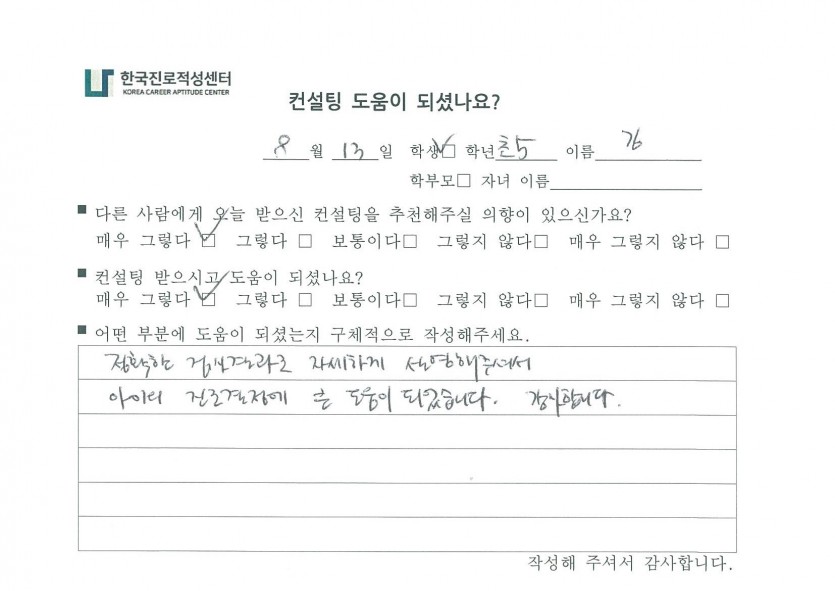 한국진로적성센터
KOREA CAREER APTITUDE CENTER
컨설팅 도움이 되셨나요?
8 월 13 일 학생☑ 학년 초5 이름 김
학부모□ 자녀 이름
■ 다른 사람에게 오늘 받으신 컨설팅을 추천해주실 의향이 있으신가요?
매우 그렇다 ☑ 그렇다 □ 보통이다□ 그렇지 않다□ 매우 그렇지 않다 □
■ 컨설팅 받으시고 도움이 되셨나요?
매우 그렇다 ☑ 그렇다 □ 보통이다□ 그렇지 않다□ 매우 그렇지 않다 □
■ 어떤 부분에 도움이 되셨는지 구체적으로 작성해주세요.
정확한 검사결과로 자세하게 설명해주셔서
아이의 진로결정에 큰 도움이 되었습니다. 감사합니다.
작성해 주셔서 감사합니다.